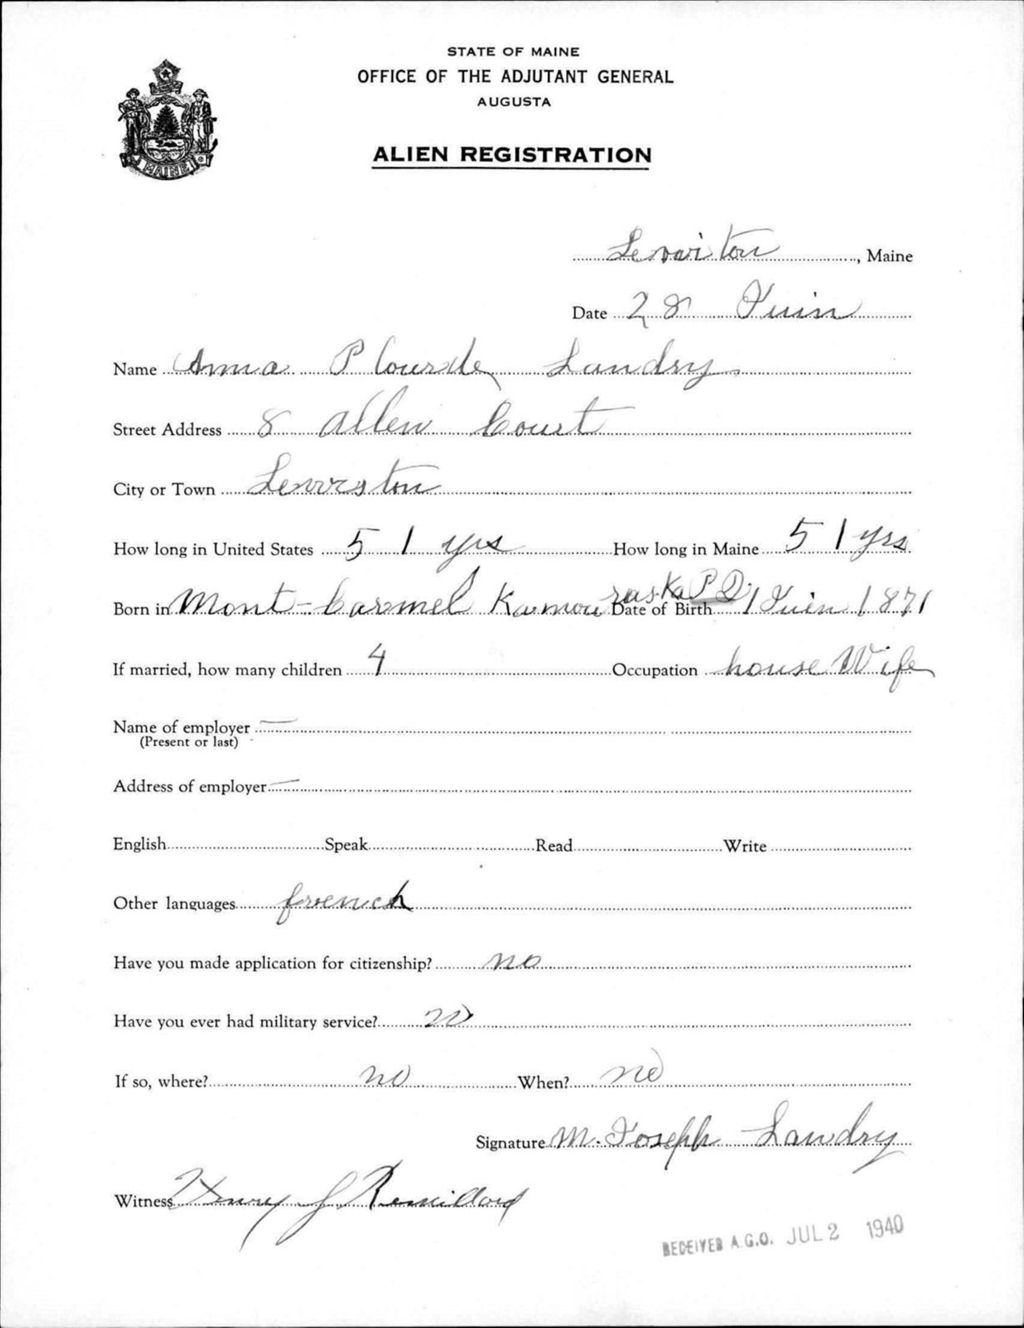 STATE OF MAINE
OFFICE OF THE ADJUTANT GENERAL
AUGUSTA
ALIEN REGISTRATION
MAINE
Lewiston, Maine
Date 28 Juin
Name Anna Plourde Landry
Street Address 8 Allen Court
City or Town Lewiston
How long in United States 51 yrs How long in Maine 51 yrs
Born in Mont-Carmel Kamouraska P.Q. Date of Birth 1 Juin 1871
If married, how many children 4 Occupation house Wife
Name of employer —
(Present or last)
Address of employer —
English Speak Read Write
Other languages french
Have you made application for citizenship? no
Have you ever had military service? no
If so, where? no When? no
Signature M. Joseph Landry
Witness Henry J Remillard
RECEIVED A.G.O. JUL 2 1940